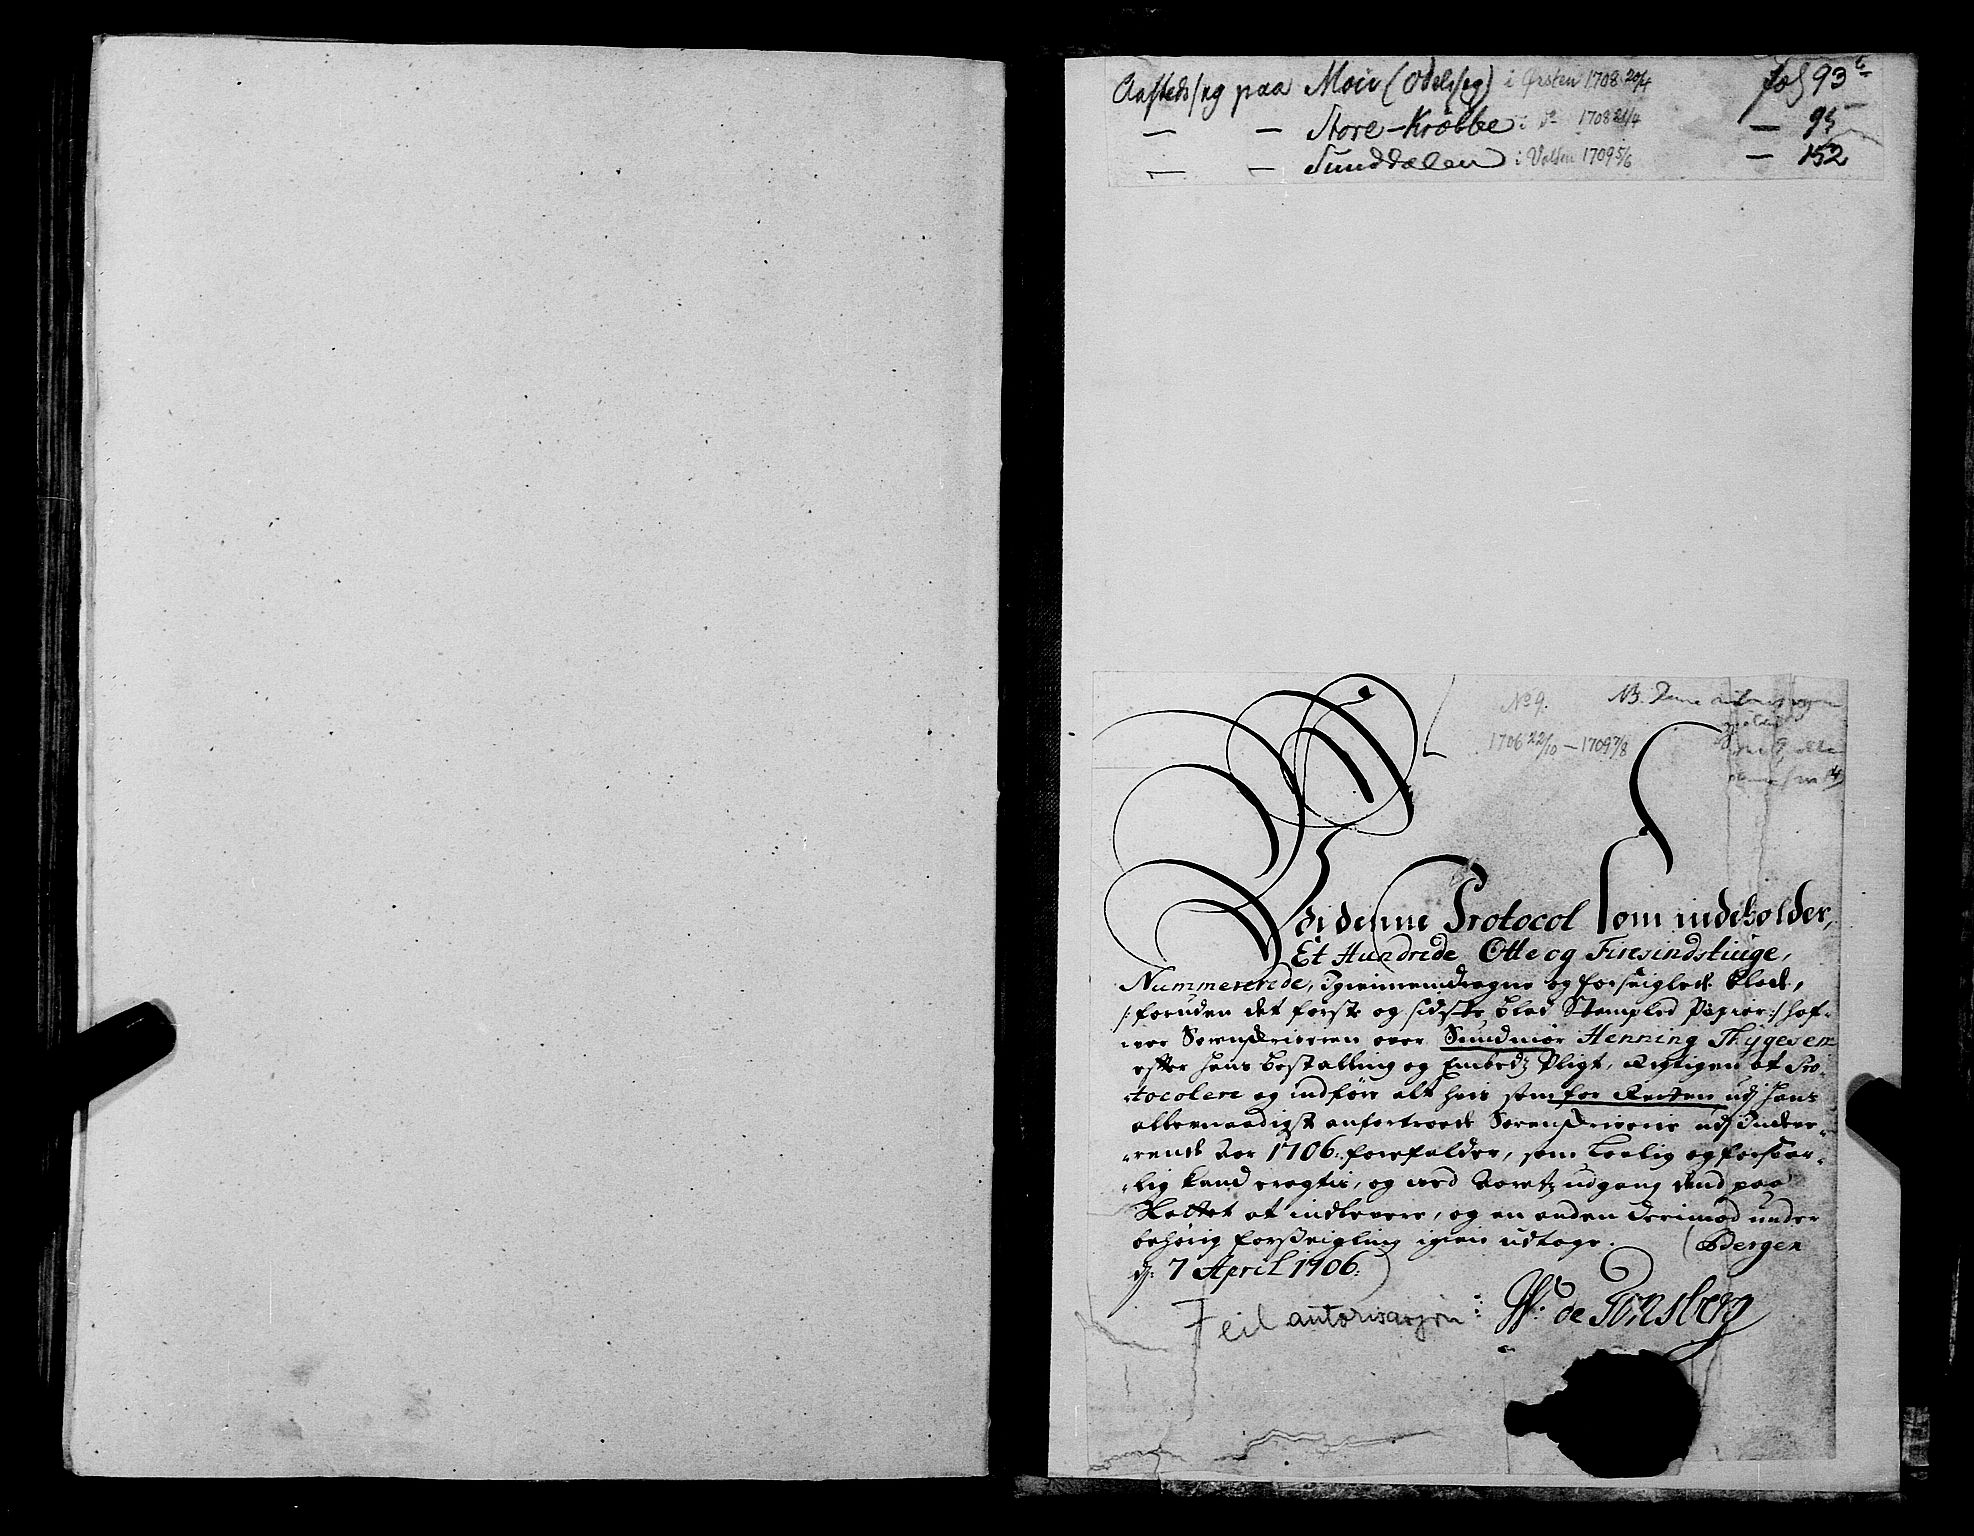 Aastedssag paa Moir (Odelssag) i Ørsten 1708 20/4 fol 93 b
— — Store-Krøbbe i do 1708 21/4 — 95
— — Sunddalen i Volden 1709 5/6 — 152
No 9. NB. Denne
1706 22/10 — 1709 7/8
Udi denne Protocol som indeholder,
Et Hundrede Otte og Firesindstiuge,
Nummererede, Igiennemdragne og forseiglede Blade,
/:foruden det første og sidste blad Stempled Papiir:/ haf-
wer Sorenskriveren over Sundmør Henning Thygesen
efter hans bestalling og Embedz Pligt, Rigtigen at Pro-
tocolere og indføre alt hvis som for Retten udj hans
allernaadigst anfortroede Sorenskriverie udj Indevæ-
rende Aar 1706. forefalder, som lovlig og forsvar-
lig kand eragtis, og ved Aaretz udgang dend paa
Raadet at indlevere, og en anden derimod under
behørig forseigling igien udtage. Bergen
dj: 7 April 1706.
Feil autorisasjon: W. de Tonsberg